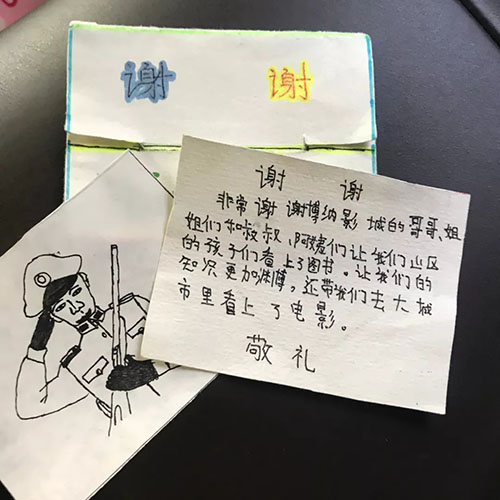 谢 谢
谢 谢
非常谢谢博纳影城的哥哥、姐
姐们和叔叔、阿姨们让我们山区
的孩子们看上了图书。让我们的
知识更加渊博，还带我们去大城
市里看上了电影。
敬礼